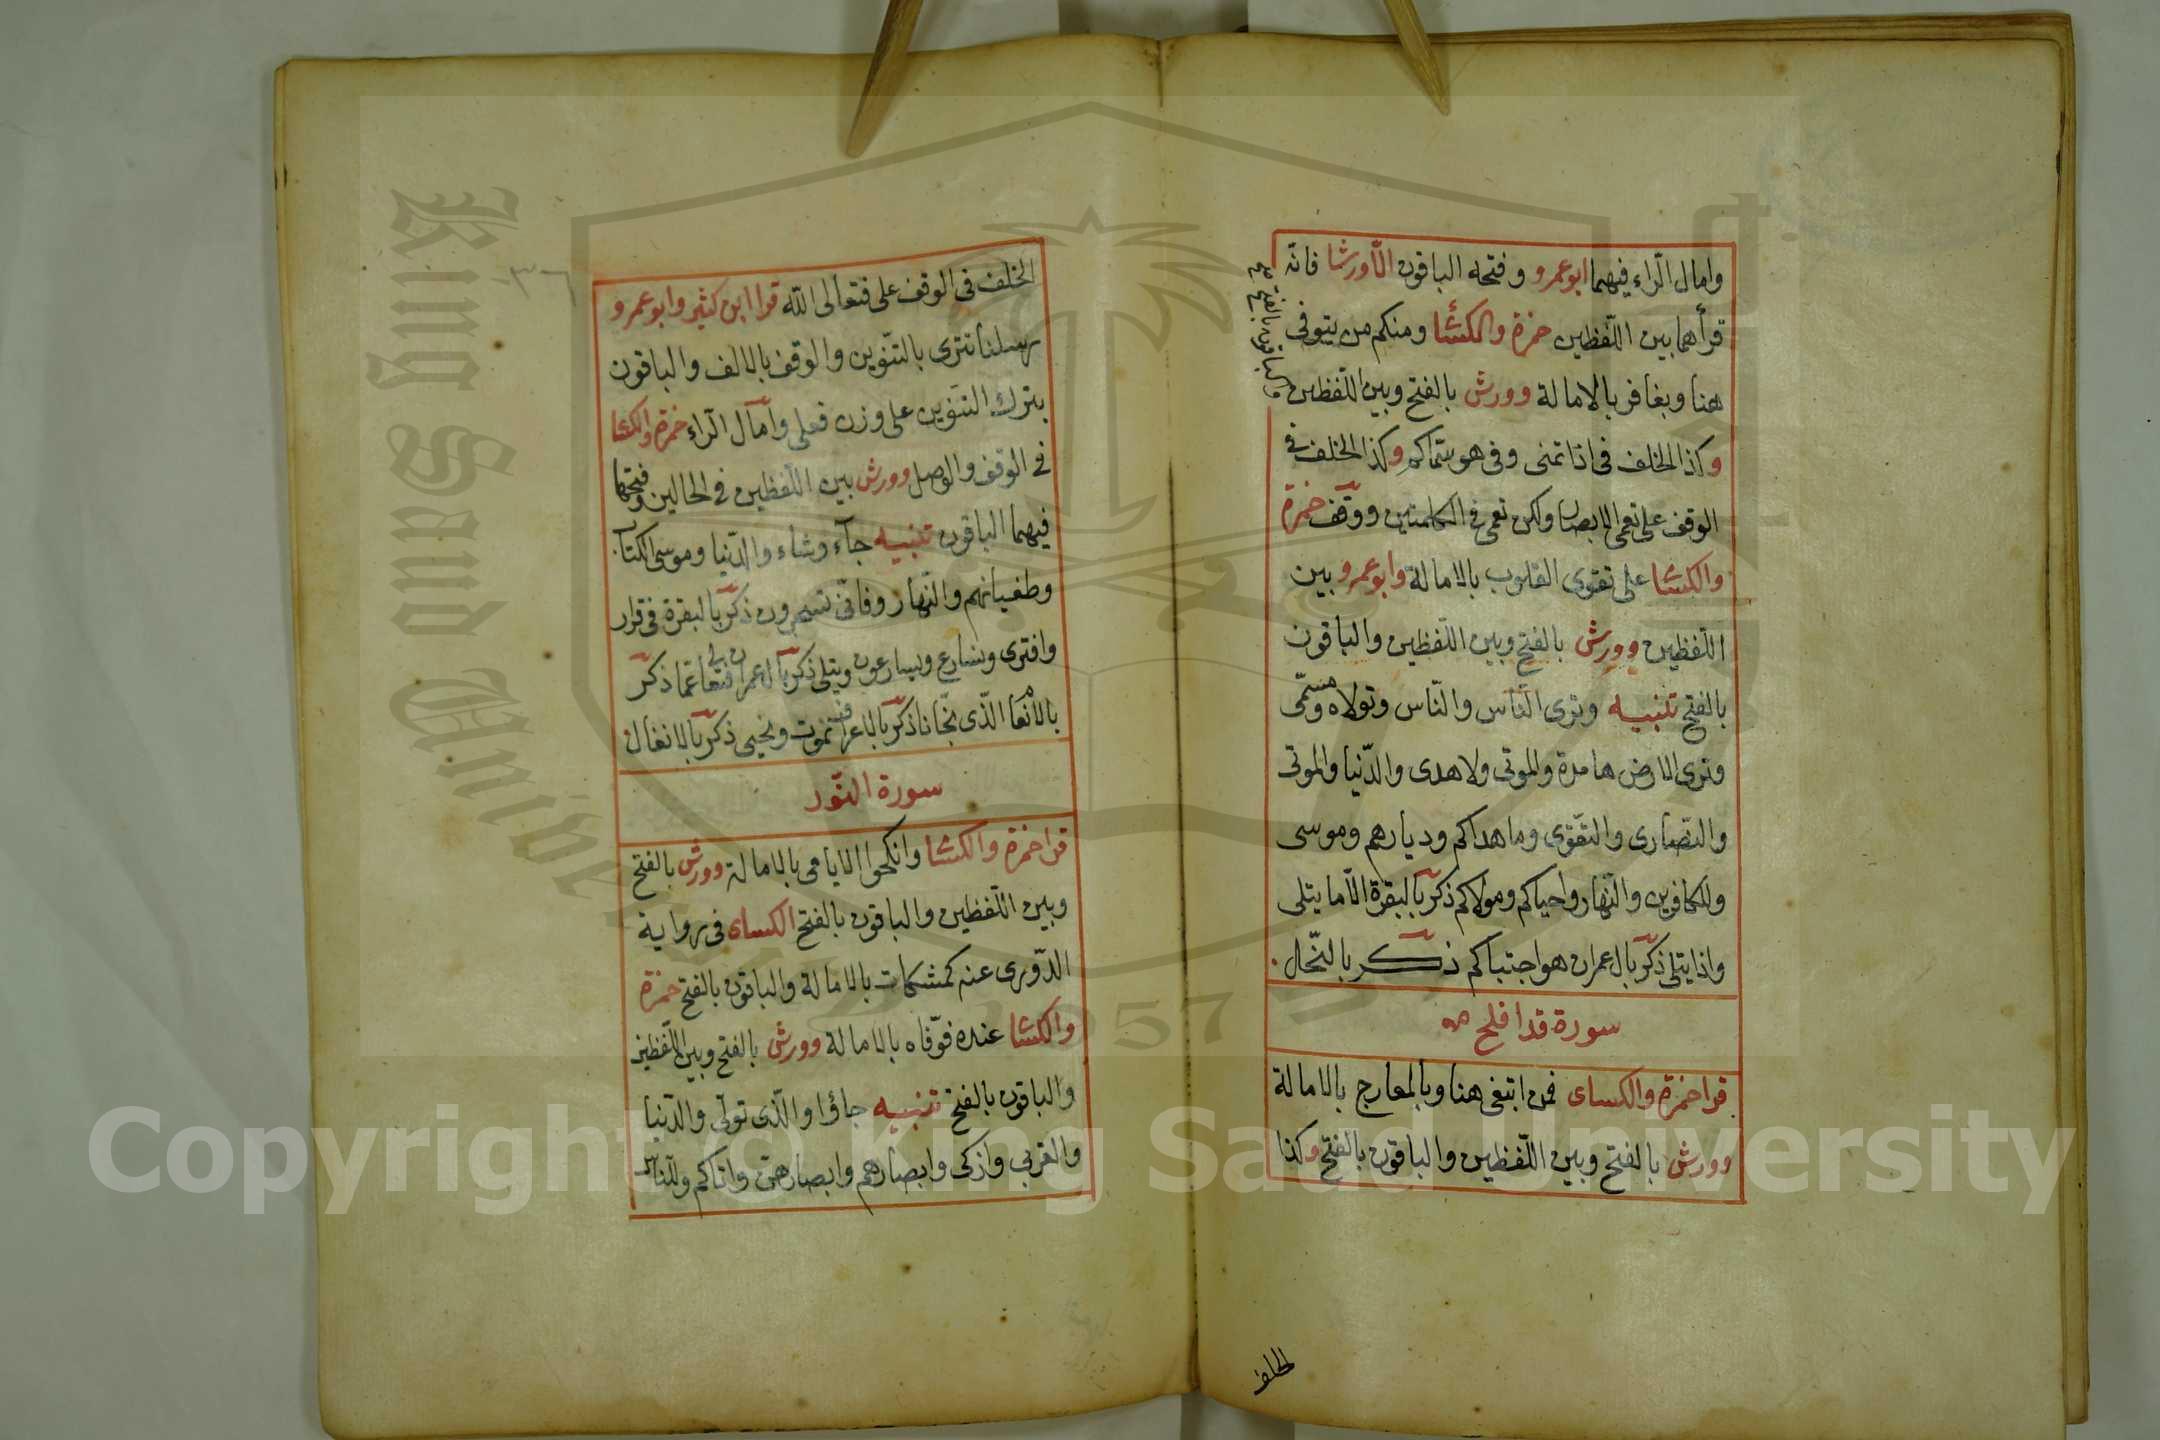 وامال الراء فيهما ابوعمرو وفتحه الباقون الا ورشا فانه
قرأهما بين اللفظين حمزة والكسئا ومنكم من يتوفى
هنا وبغافر بالامالة وورش بالفتح وبين اللفظين
والباقون بالفتح صح
وكذا الخلف فى اذا تمنى وفى هو سماكم وكذا الخلف فى
الوقف على تعمى الابصار ولكن تعمى فى الكلمتين ووقف حمزة
والكسئا على تقوى القلوب بالامالة وابوعمرو بين
اللفظين وورش بالفتح وبين اللفظين والباقون
بالفتح تنبيه وترى الناس والناس وتولاه ومسمى
وترى الارض هامدة والموتى ولا هدى والدنيا والموتى
والنصارى والتقوى وما هداكم وديارهم وموسى
وللكافرين والنهار واحياكم ومولاكم ذكر بالبقرة الا ما يتلى
واذا يتلى ذكر بال عمران هو اجتباكم ذكر بالنحل
سورة قد افلح
قرا حمزة والكساى فمن ابتغى هنا وبالمعارج بالامالة
وورش بالفتح وبين اللفظين والباقون بالفتح وكذا
الخلف
٣٦
الخلف فى الوقف على فتعالى الله قرا ابن كثير وابوعمرو
رسلنا تترى بالتنوين والوقف بالالف والباقون
بترك التنوين على وزن فعلى وامال الراء حمزة والكسئا
فى الوقف والوصل وورش بين اللفظين فى الحالين وفتحها
فيهما الباقون تنبيه جآء وشاء والدنيا وموسى الكتاب
وطغيانهم والنهار وفانى تسحرون ذكر بالبقرة فى قرار
وافترى ونسارع ويسارعون ويتلى ذكر بال عمران فتعالى عما ذكر
بالانعام الذى نجانا ذكر بالاعراف نموت ونحيى ذكر بالانفال
سورة النور
قرا حمزة والكسئا وانكحوا الايامى بالامالة وورش بالفتح
وبين اللفظين والباقون بالفتح الكساى فى رواية
الدورى عنه كمشكات بالامالة والباقون بالفتح حمزة
والكسئا عنده فوفاه بالامالة وورش بالفتح وبين اللفظين
والباقون بالفتح تنبيه جاؤا والذى تولى والدنيا
والقربى وازكى وابصارهم وابصارهن واتاكم وللناس
King Saud University
1957
Copyright © King Saud University